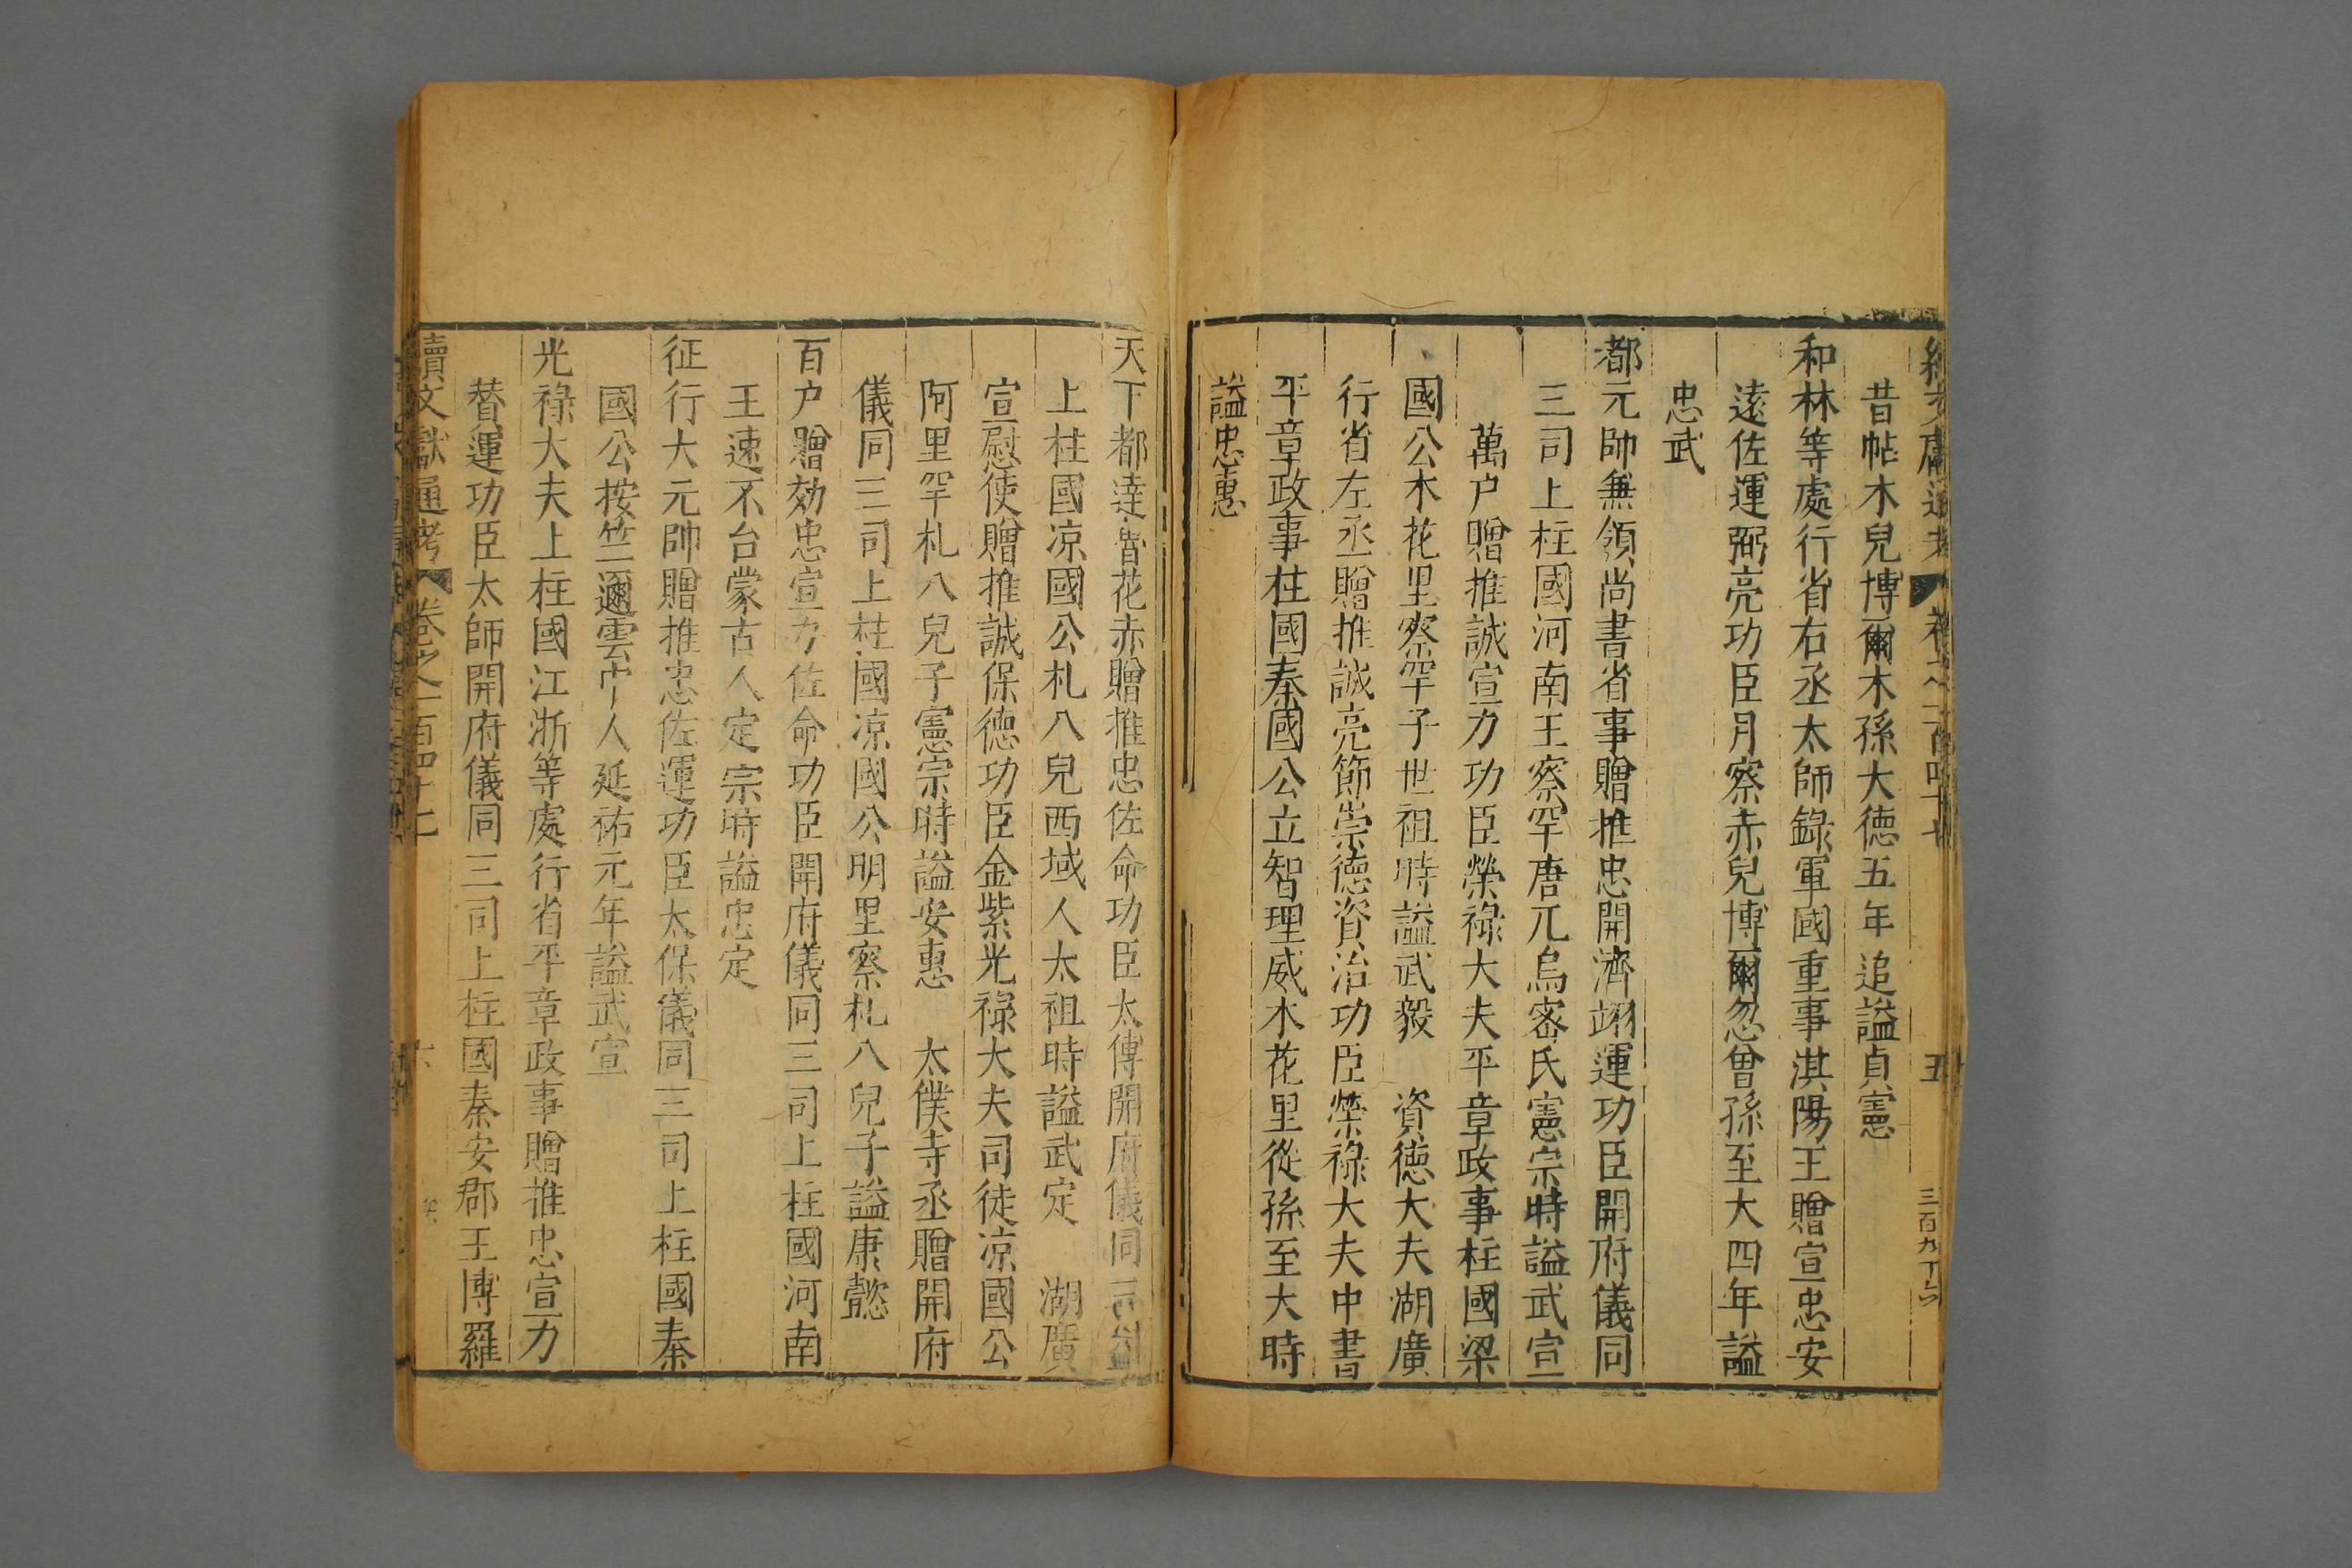 昔帖木兒博爾木孫大德五年追謚貞憲
和林等處行省右丞太師錄軍國重事淇陽王贈宣忠安
遠佐運弼亮功臣月察赤兒博爾忽曾孫至大四年謚
忠武
都元帥兼領尚書省事贈推忠開濟翊運功臣開府儀同
三司上柱國河南王察罕唐兀烏密氏憲宗時謚武宣
萬户贈推誠宣力功臣榮祿大夫平章政事柱國梁
國公木花里察罕子世祖時謚武毅 資德大夫湖廣
行省左丞贈推誠亮節崇德資治功臣榮祿大夫中書
平章政事柱國秦國公立智理威木花里從孫至大時
謚忠惠
天下都達魯花赤贈推忠佐命功臣太傅開府儀同三司
上柱國凉國公札八兒西域人太祖時謚武定 湖廣
宣慰使贈推誠保德功臣金紫光祿大夫司徒凉國公
阿里罕札八兒子憲宗時謚安惠 太僕寺丞贈開府
儀同三司上柱國凉國公明里察札八兒子謚康懿
百户贈効忠宣力佐命功臣開府儀同三司上柱國河南
王速不台蒙古人定宗時謚忠定
征行大元帥贈推忠佐運功臣太保儀同三司上柱國秦
國公按竺邇雲中人延祐元年謚武宣
光祿大夫上柱國江浙等處行省平章政事贈推忠宣力
賛運功臣太師開府儀同三司上柱國秦安郡王博羅
續文獻通考 卷之一百四十七 六